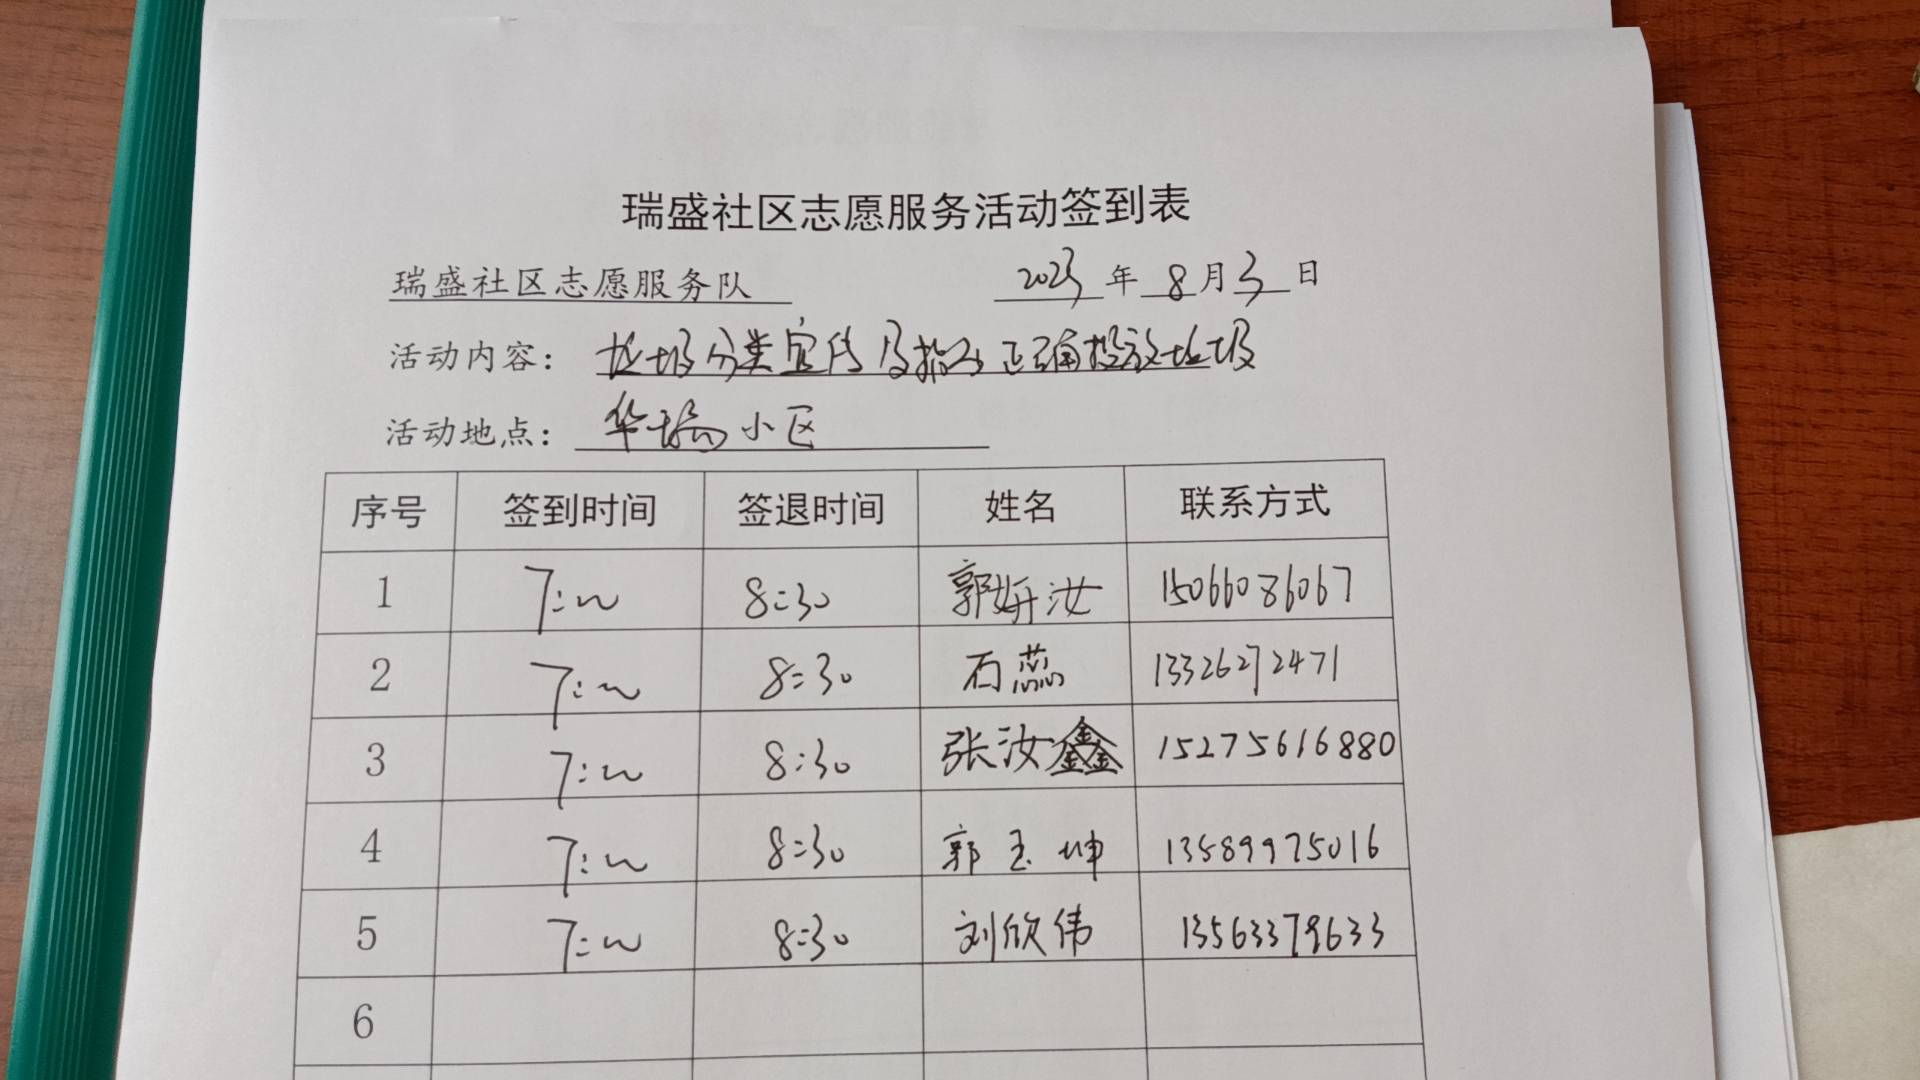 瑞盛社区志愿服务活动签到表
瑞盛社区志愿服务队 2023年8月3日
活动内容：垃圾分类宣传及指导正确投放垃圾
活动地点：华瑞小区
序号 签到时间 签退时间 姓名 联系方式
1 7:00 8:30 郭妍汝 15066086067
2 7:00 8:30 石蕊 13326272471
3 7:00 8:30 张汝鑫 15275616880
4 7:00 8:30 郭玉坤 13589975016
5 7:00 8:30 刘欣伟 13563379633
6